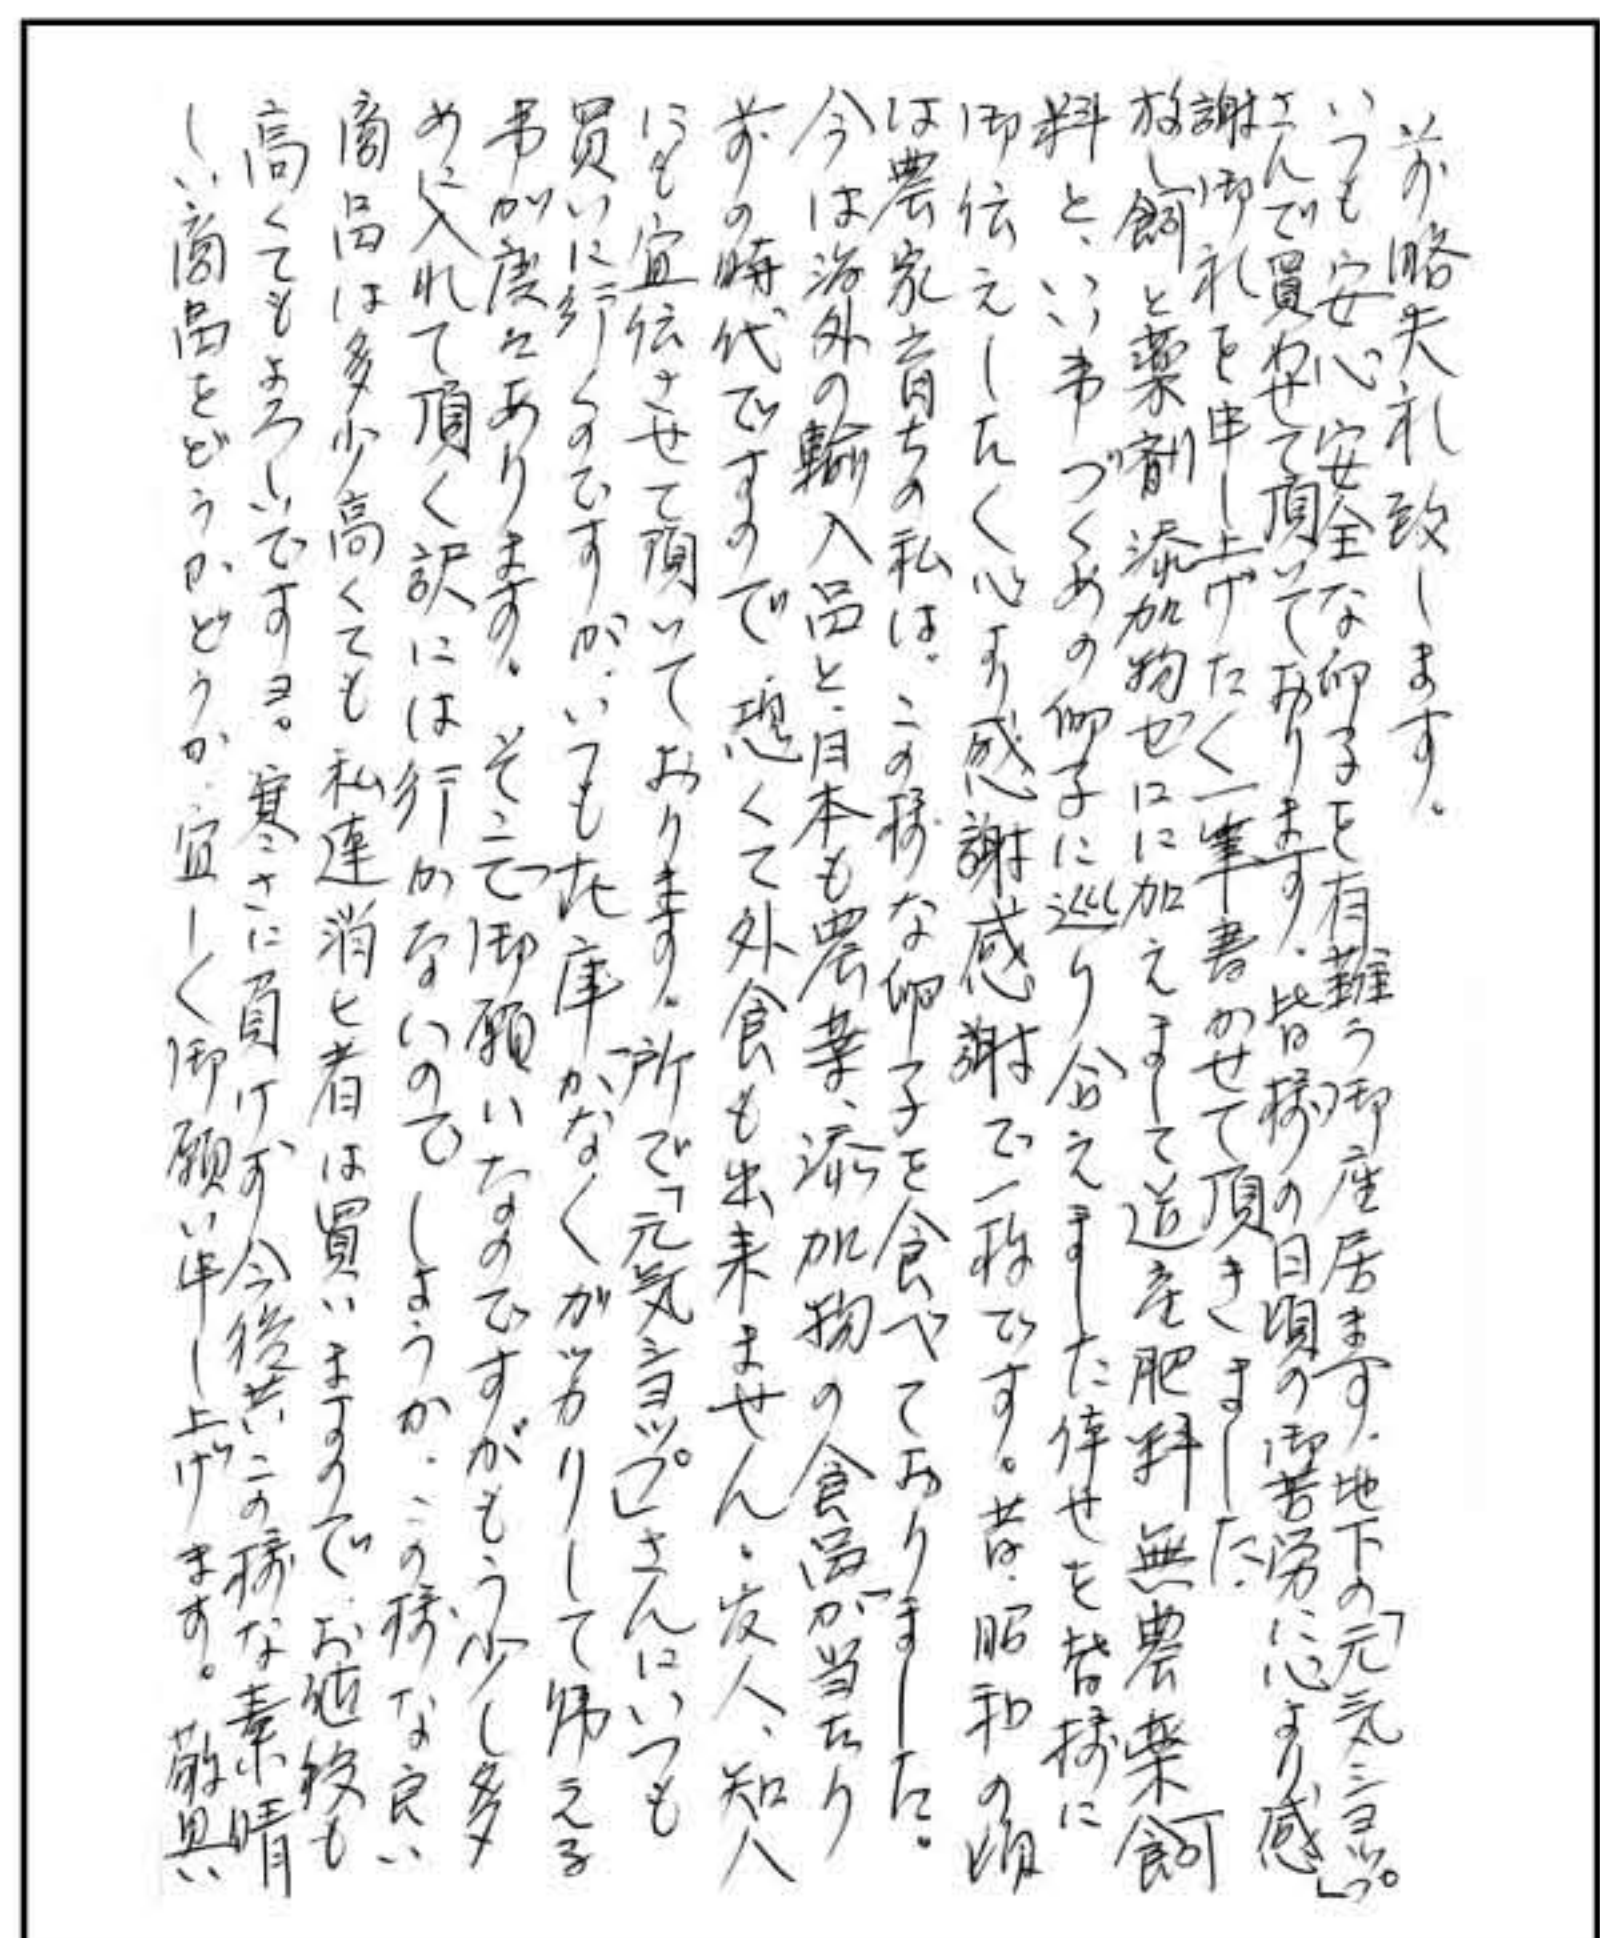 前略失礼致します。
いつも安心安全な卵子を有難う御座居ます。地下の「元気ショップ」
さんで買わせて頂いております。皆様の日頃の御苦労に心より感
謝御礼を申し上げたく一筆書かせて頂きました。
放し飼と薬剤添加物ゼロに加えまして道産肥料無農薬飼
料と、いい事づくめの卵子に巡り合えました倖せを皆様に
御伝えしたく心より感謝感謝で一杯です。昔、昭和の頃
は農家育ちの私は、この様な卵子を食べておりました。
今は海外の輸入品と、日本も農薬、添加物の食品が当たり
前の時代ですので、恐くて外食も出来ません。友人、知人
にも宣伝させて頂いております。所で「元気ショップ」さんにいつも
買いに行くのですが、いつも在庫がなくガッカリして帰える
事が度々あります。そこで御願いなのですがもう少し多
めに入れて頂く訳には行かないのでしようか。この様な良い
商品は多少高くても私達消ヒ者は買いますので、お値段も
高くてもよろしいですヨ。寒さに負けず今後共この様な素晴
しい商品をどうかどうか宜しく御願い申し上げます。敬具